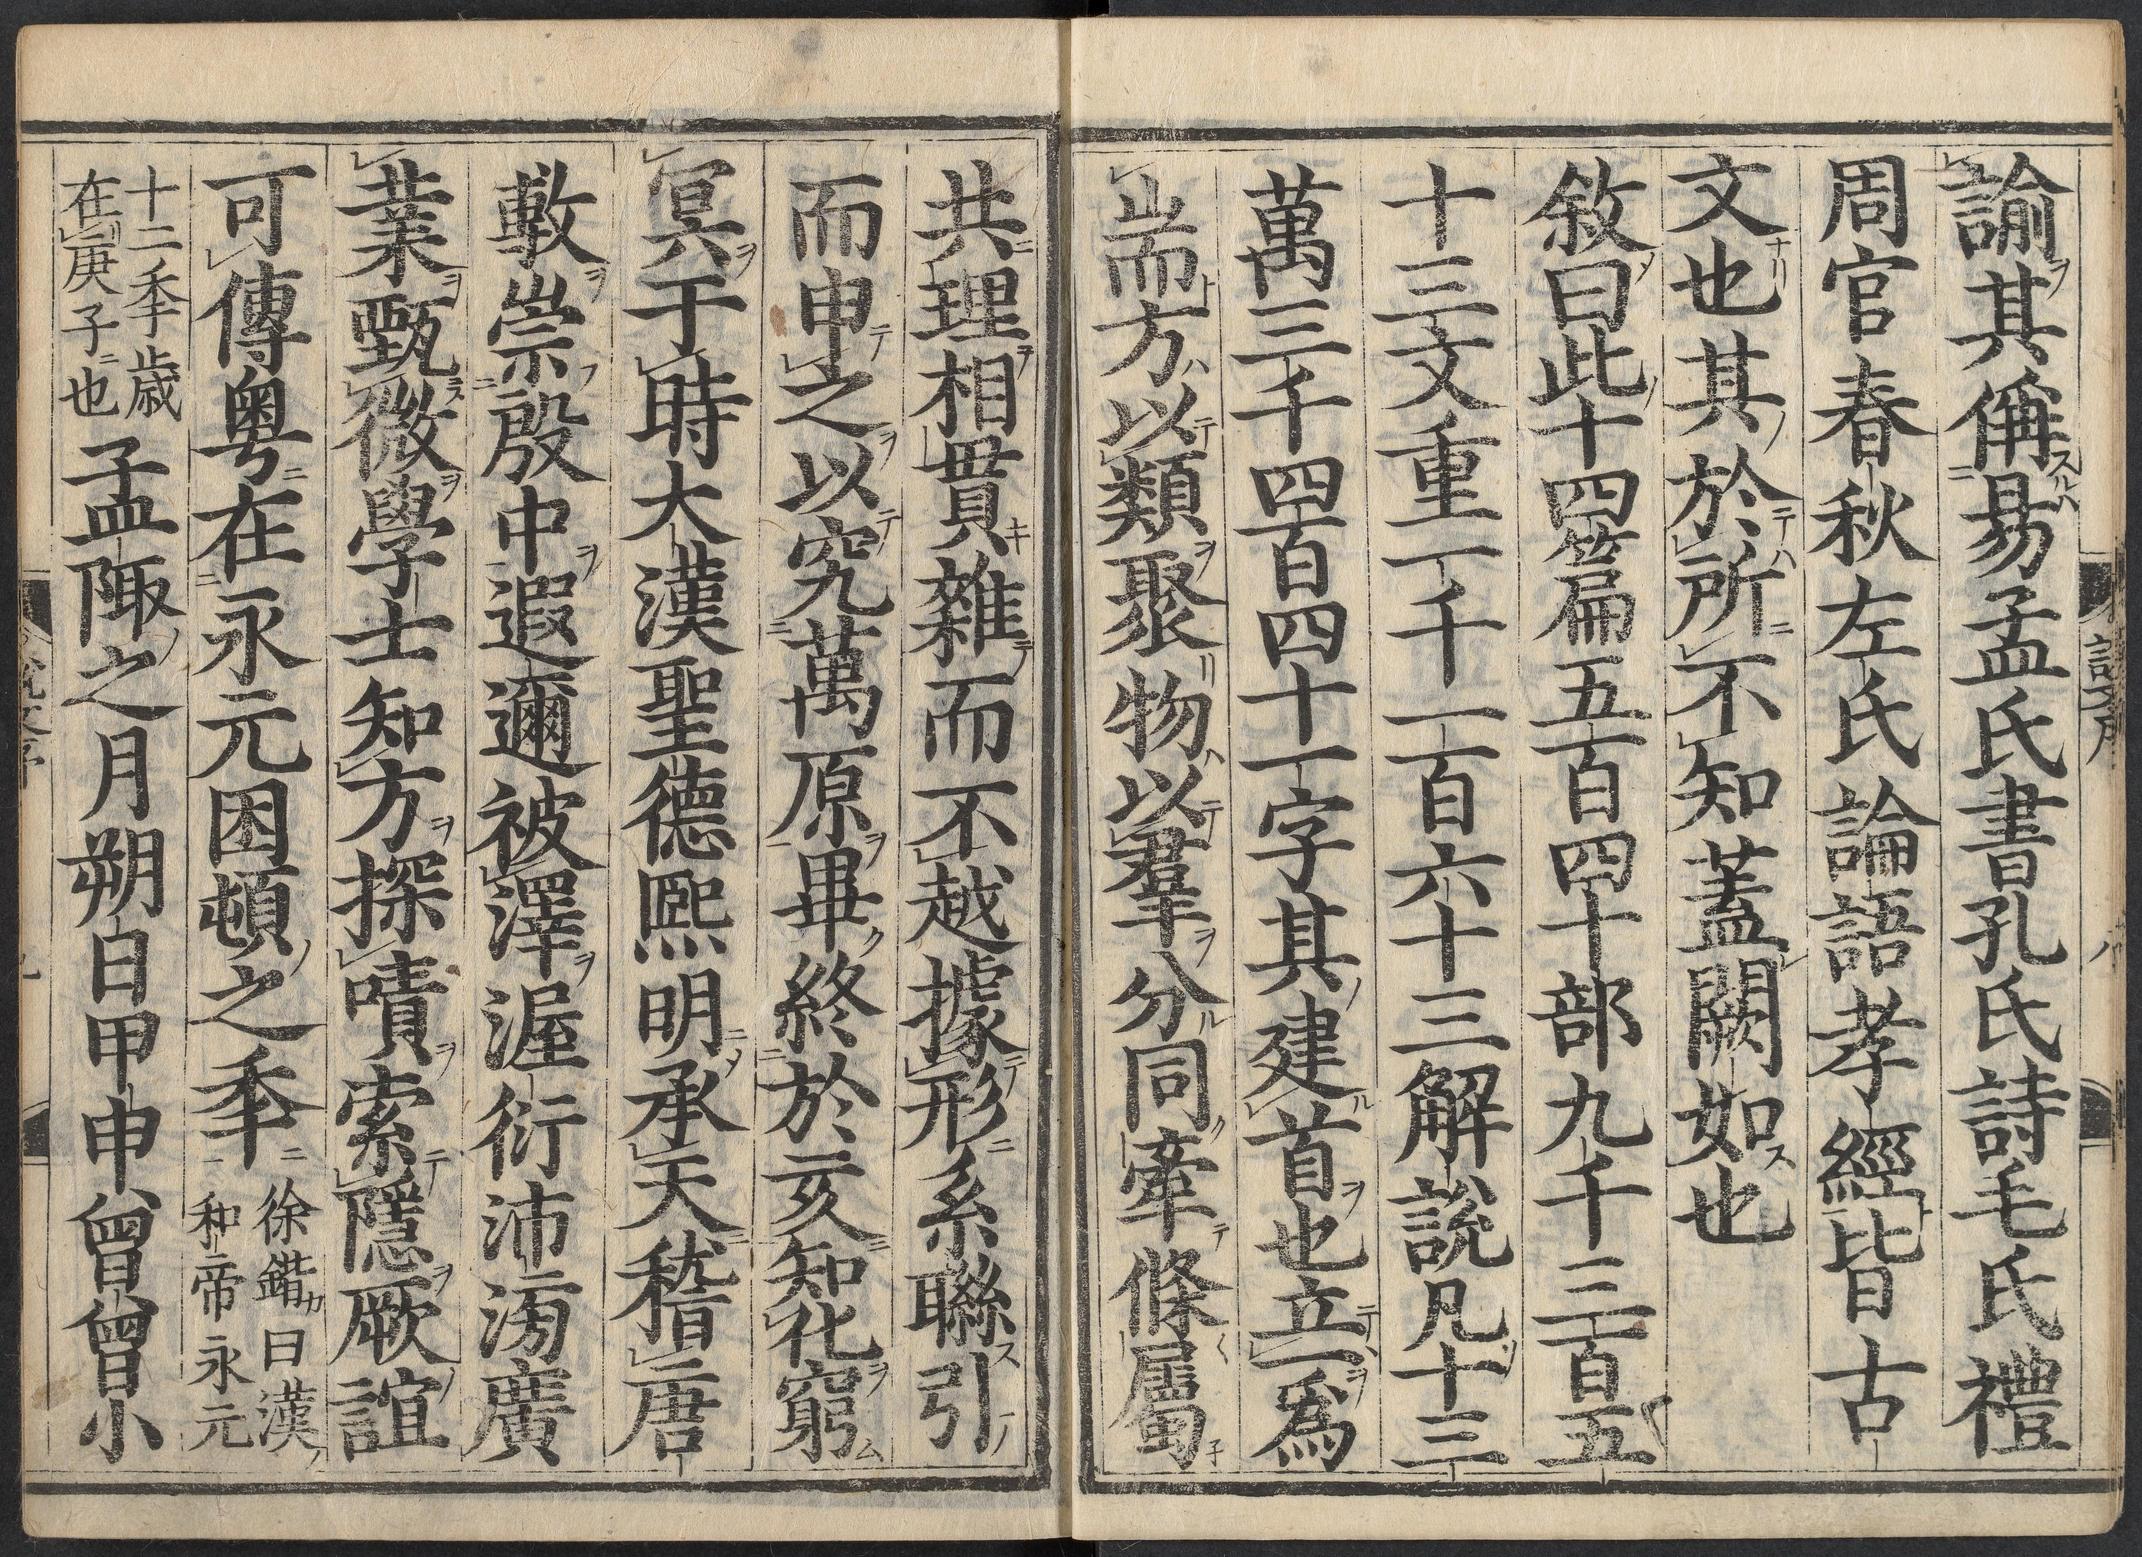 諭其偁易孟氏書孔氏詩毛氏禮
周官春秋左氏論語孝經皆古
文也其於所不知蓋闕如也
敘曰此十四篇五百四十部九千三百五
十三文重一千一百六十三解說凡十三
萬三千四百四十一字其建首也立一爲
耑而方以類聚物以羣分同牽條屬
共理相貫雜而不越據形系聯引
而申之以究萬原畢終於亥知化窮
冥于時大漢聖德熙明承天稽唐
敷崇殷中遐邇被澤渥衍沛滂廣
業甄微學士知方探嘖索隱厥誼
可傳粤在永元困頓之秊
徐鍇曰漢
和帝永元
十二秊歲
在庚子也
孟陬之月朔日甲申曾曾小